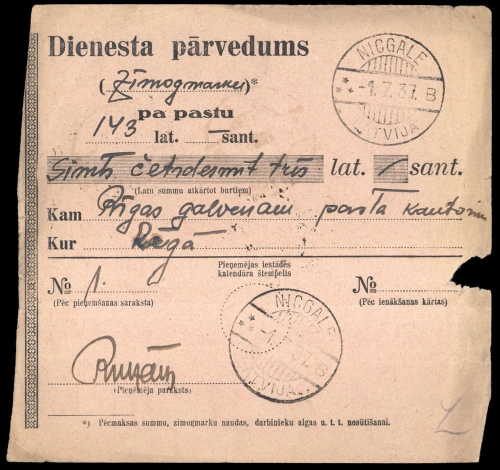 Dienesta pārvedums
NICGALE
-1.7.37. B
LATVIJA
(Zīmogmarkas)*
pa pastu
143 lat. — sant.
Simts četrdesmit trīs lat. — sant.
(Latu summu atkārtot burtiem)
Kam Rīgas galvenam pasta kantorim
Kur Rīgā
Pieņemējas iestādēs
kalendāra štempelis
№ 1.
№
(Pēc pieņemšanas saraksta)
(Pēc ienākšanas kārtas)
NICGALE
37. B
LATVIJA
(Pieņēmēja paraksts)
*) Pēcmaksas summu, zīmogmarku naudas, darbinieku algas u. t. t. nosūtīšanai.